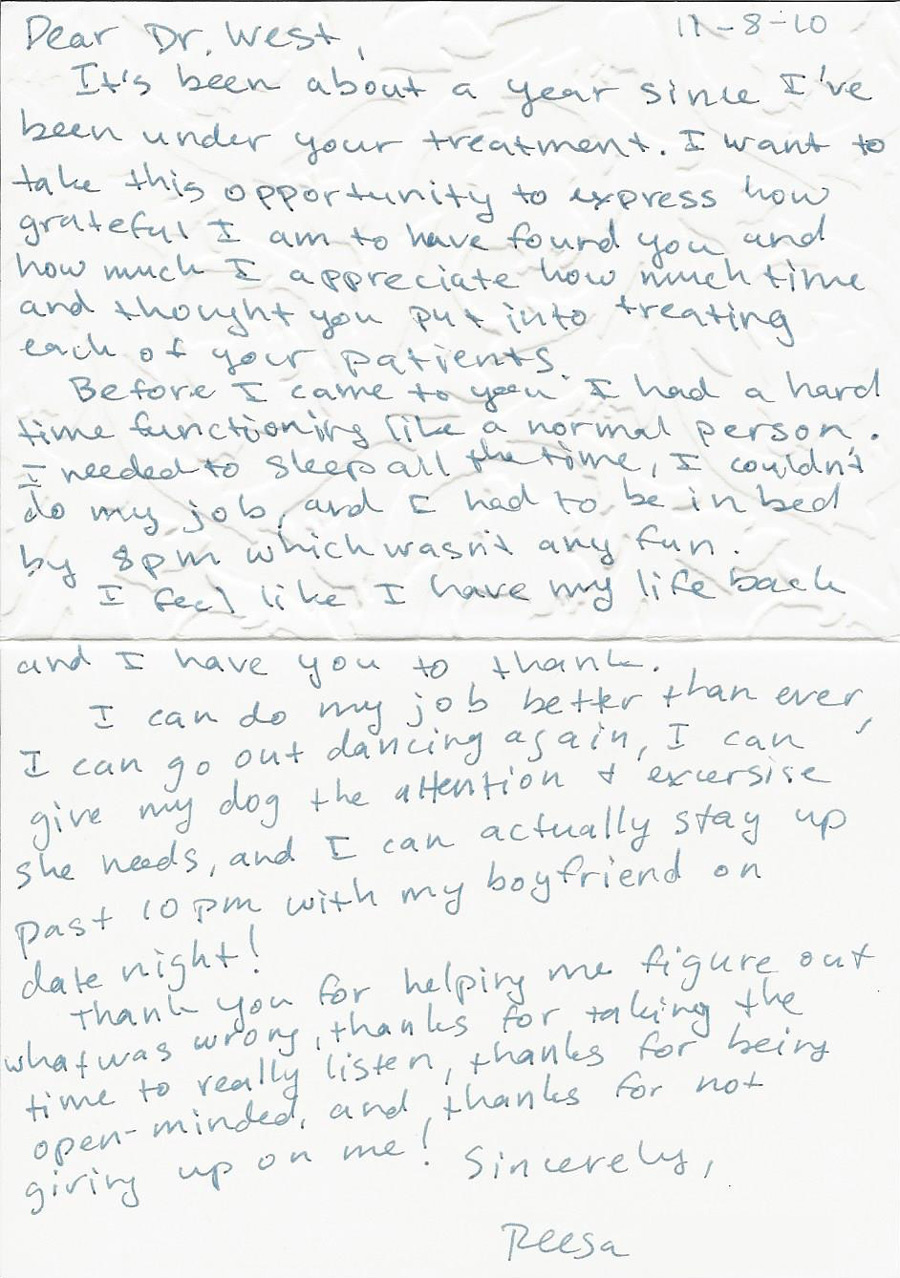 Dear Dr. West, 11-8-10
It's been about a year since I've
been under your treatment. I want to
take this opportunity to express how
grateful I am to have found you and
how much I appreciate how much time
and thought you put into treating
each of your patients.
Before I came to you I had a hard
time functioning like a normal person.
I needed to sleep all the time, I couldn't
do my job, and I had to be in bed
by 8pm which wasn't any fun.
I feel like I have my life back
and I have you to thank.
I can do my job better than ever,
I can go out dancing again, I can
give my dog the attention & excersise
she needs, and I can actually stay up
past 10pm with my boyfriend on
date night!
Thank you for helping me figure out
what was wrong, thanks for taking the
time to really listen, thanks for being
open-minded, and, thanks for not
giving up on me!
Sincerely,
Reesa